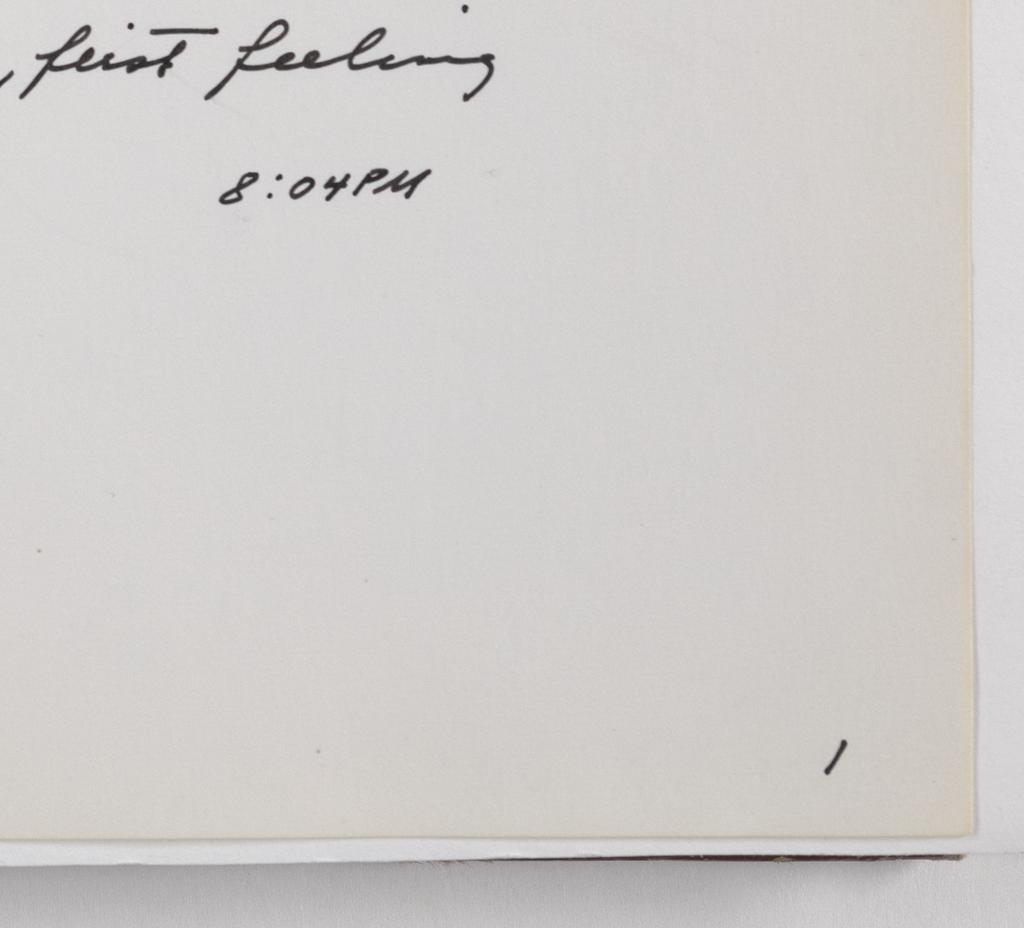 , first feeling
8:04PM
1